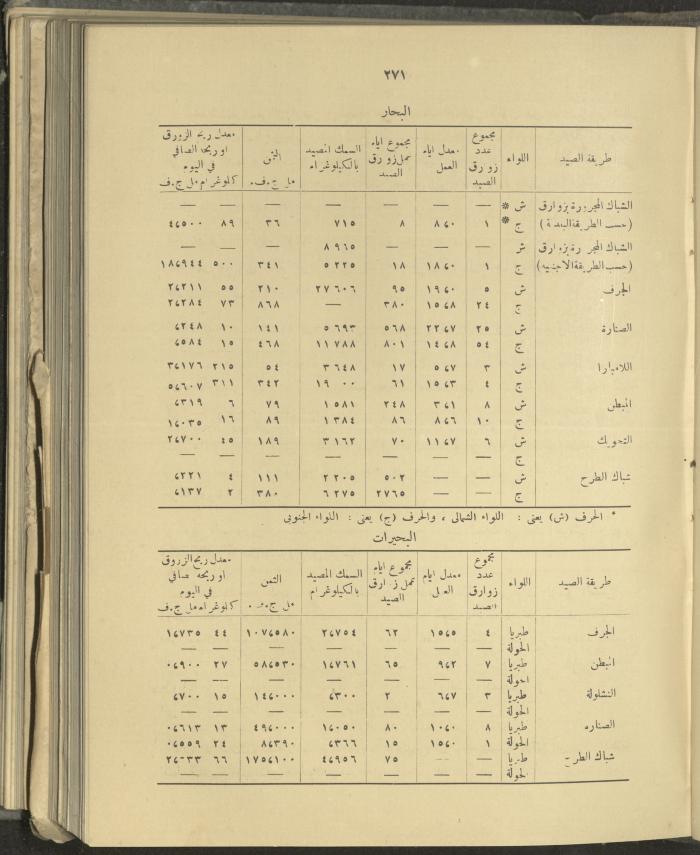 ٢٧١
البحار
طريقة الصيد | اللواء | مجموع عدد زوارق الصيد | معدل ايام العمل | مجموع ايام عمل زوارق الصيد | السمك المصيد بالكيلوغرام | الثمن مل ج.ف. | معدل ربح الزورق او ربحه الصافي في اليوم كيلوغرام مل ج.ف
الشباك المجرورة بزوارق ش * — — — — — — —
(حسب الطريقة البلدية) ج * ١ ٨٬٠ ٨ ٧١٥ ٣٦ ٨٩ ٤٬٥٠٠
الشباك المجرورة بزوارق ش — — — ٨٩٦٥ — — —
(حسب الطريقة الاجنبية) ج ١ ١٨٬٠ ١٨ ٥٢٢٥ ٣٤١ ٥٠٠ ١٨٬٩٤٤
الجرف ش ٥ ١٩٬٠ ٩٥ ٢٧٦٠٦ ٢١٠ ٥٥ ٢٬٢١١
ج ٢٤ ١٥٬٨ ٣٨٠ — ٨٦٨ ٧٣ ٢٬٢٨٤
الصنارة ش ٢٥ ٢٢٬٧ ٥٦٨ ٥٦٩٣ ١٤١ ١٠ ٬٢٤٨
ج ٥٤ ١٤٬٨ ٨٠١ ١١٧٨٨ ٤٦٨ ١٥ ٬٥٨٤
اللامبارا ش ٣ ٥٬٧ ١٧ ٣٦٤٨ ٥٤ ٢١٥ ٣٬١٧٦
ج ٤ ١٥٬٣ ٦١ ١٩٠٠٠ ٣٤٢ ٣١١ ٥٬٦٠٧
المبطن ش ٨ ٣١٬٠ ٢٤٨ ١٥٨١ ٧٩ ٦ ٬٣١٩
ج ١٠ ٨٬٦ ٨٦ ١٣٨٤ ٨٩ ١٦ ١٬٠٣٥
التحويك ش ٦ ١١٬٧ ٧٠ ٣١٦٢ ١٨٩ ٤٥ ٢٬٧٠٠
ج — — — — — — —
شباك الطرح ش — — ٥٠٢ ٢٢٠٥ ١١١ ٤ ٬٢٢١
ج — — ٢٧٦٥ ٦٢٧٥ ٣٨٠ ٢ ٬١٣٧
* الحرف (ش) يعنى : اللواء الشمالى ، والحرف (ج) يعنى : اللواء الجنوبى
البحيرات
طريقة الصيد | اللواء | مجموع عدد زوارق الصيد | معدل ايام العمل | مجموع ايام عمل زوارق الصيد | السمك المصيد بالكيلوغرام | الثمن مل ج.ف. | معدل ربح الزورق او ربحه صافي في اليوم كيلوغرام مل ج.ف
الجرف طبريا ٤ ١٥٬٥ ٦٢ ٢٬٧٥٤ ١٠٧٬٥٨٠ ٤٤ ١٬٧٣٥
الحولة — — — — — — —
المبطن طبريا ٧ ٩٬٢ ٦٥ ١٬٧٦١ ٥٨٬٥٣٠ ٢٧ ٠٬٩٠٠
الحولة — — — — — — —
النشلولة طبريا ٣ ٦٬٧ ٢ ٬٣٠٠ ١٤٬٠٠٠ ١٥ ٬٧٠٠
الحولة — — — — — — —
الصناره طبريا ٨ ١٠٬٠ ٨٠ ١٬٠٥٠ ٤٩٬٠٠٠ ١٣ ٠٬٦١٣
الحولة ١ ١٥٬٠ ١٥ ٬٣٦٦ ٨٬٣٩٠ ٢٤ ٠٬٥٥٩
شباك الطرح طبريا — — ٧٥ ٤٬٩٥٦ ١٧٥٬١٠٠ ٦٦
الحولة — — — — — — —